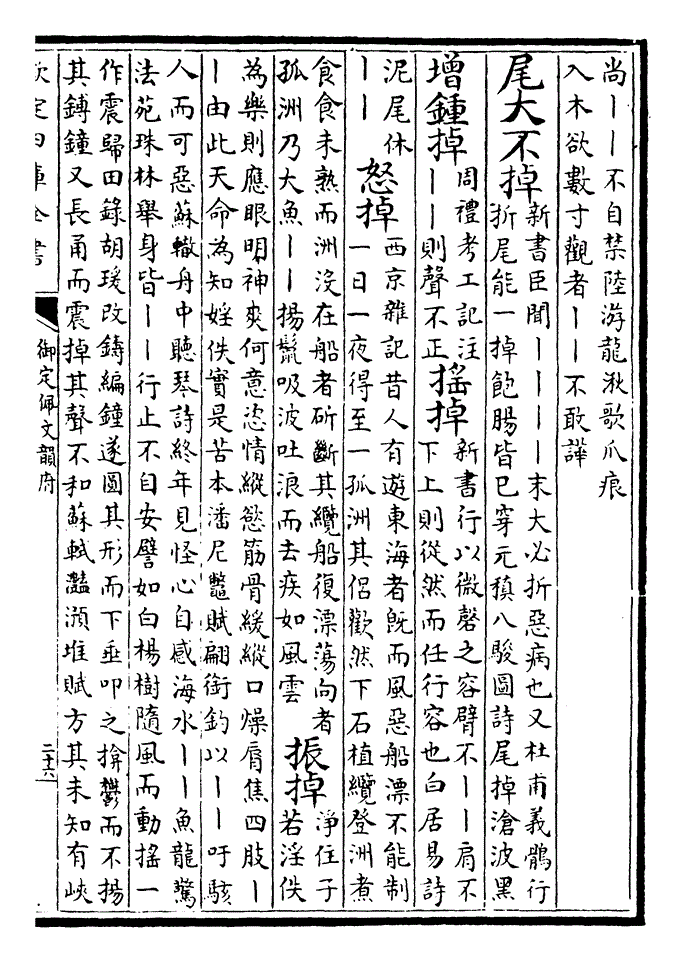 尚丨丨不自禁陸游龍湫歌爪痕
入木欲數寸觀者丨丨不敢譁
尾大不掉
新書臣聞丨丨丨丨末大必折惡病也又杜甫義鶻行
折尾能一掉飽腸皆已穿元稹八駿圖詩尾掉滄波黑
增鍾掉
周禮考工記注
丨丨則聲不正
搖掉
新書行以微磬之容臂不丨丨肩不
下上則從然而任行容也白居易詩
泥尾休
丨丨
怒掉
西京雜記昔人有遊東海者旣而風惡船漂不能制
一日一夜得至一孤洲其侶歡然下石植纜登洲煮
食食未熟而洲沒在船者斫斷其纜船復漂蕩向者
孤洲乃大魚丨丨揚鬣吸波吐浪而去疾如風雲
振掉
淨住子
若淫佚
為樂則應眼明神爽何意恣情縱慾筋骨緩縱口燥脣焦四肢丨
丨由此天命為知婬佚實是苦本潘尼鼈賦翩銜釣以丨丨吁駭
人而可惡蘇轍舟中聽琴詩終年見怪心自感海水丨丨魚龍驚
法苑珠林舉身皆丨丨行止不自安譬如白楊樹隨風而動搖一
作震歸田錄胡瑗改鑄編鐘遂圓其形而下垂叩之揜鬱而不揚
其鎛鐘又長甬而震掉其聲不和蘇軾灩澦堆賦方其未知有峽
欽定四庫全書
御定佩文韻府
二十六